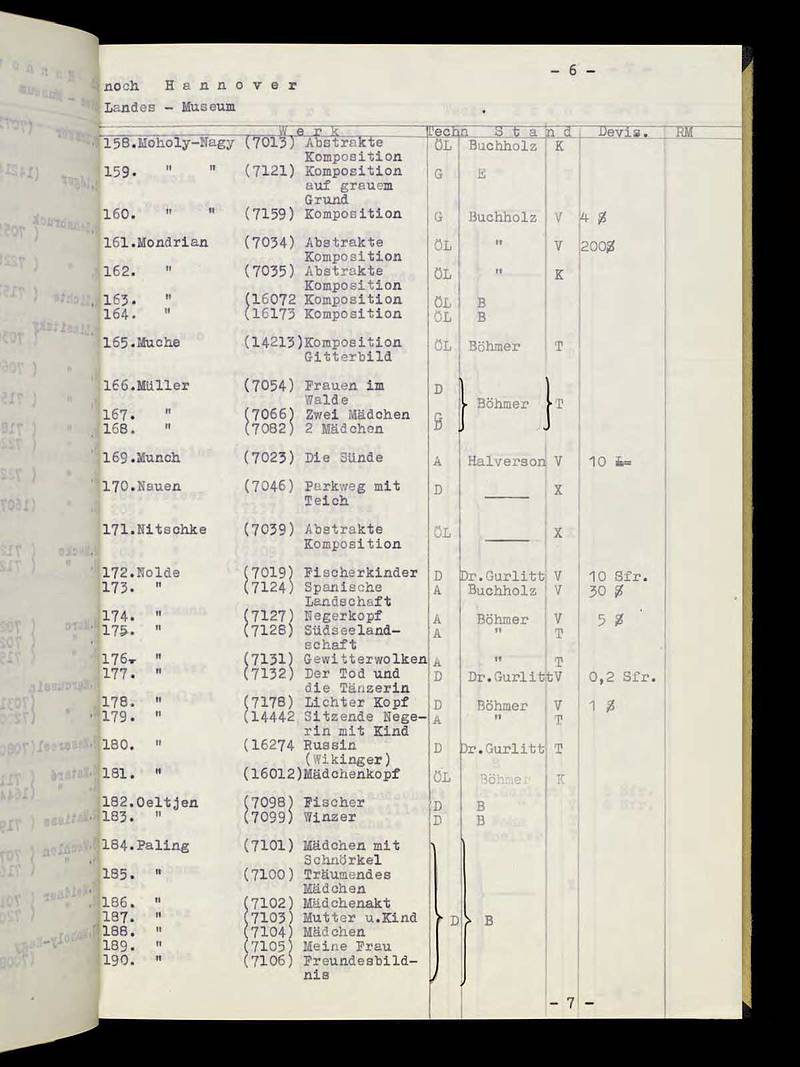 - 6 -
noch Hannover
Landes - Museum
Werk Techn Stand Devis. RM
158.Moholy-Nagy (7013) Abstrakte ÖL Buchholz K
Komposition
159. " " (7121) Komposition G E
auf grauem
Grund
160. " " (7159) Komposition G Buchholz V 4 $
161.Mondrian (7034) Abstrakte ÖL " V 200$
Komposition
162. " (7035) Abstrakte ÖL " K
Komposition
163. " (16072 Komposition ÖL B
164. " (16173 Komposition ÖL B
165.Muche (14213)Komposition ÖL Böhmer T
Gitterbild
166.Müller (7054) Frauen im D
Walde
Böhmer T
167. " (7066) Zwei Mädchen G
168. " (7082) 2 Mädchen D
169.Munch (7023) Die Sünde A Halverson V 10
170.Nauen (7046) Parkweg mit D ____ X
Teich
171.Nitschke (7039) Abstrakte ÖL ____ X
Komposition
172.Nolde (7019) Fischerkinder D Dr.Gurlitt V 10 Sfr.
173. " (7124) Spanische A Buchholz V 30 $
Landschaft
174. " (7127) Negerkopf A Böhmer V 5 $
175. " (7128) Südseeland- A " T
schaft
176. " (7131) Gewitterwolken A " T
177. " (7132) Der Tod und D Dr.GurlittV 0,2 Sfr.
die Tänzerin
178. " (7178) Lichter Kopf D Böhmer V 1 $
179. " (14442 Sitzende Nege- A " T
rin mit Kind
180. " (16274 Russin D Dr.Gurlitt T
(Wikinger)
181. " (16012)Mädchenkopf ÖL Böhmer K
182.Oeltjen (7098) Fischer D B
183. " (7099) Winzer D B
184.Paling (7101) Mädchen mit
Schnörkel
185. " (7100) Träumendes
Mädchen
186. " (7102) Mädchenakt
187. " (7103) Mutter u.Kind D B
188. " (7104) Mädchen
189. " (7105) Meine Frau
190. " (7106) Freundesbild-
nis
- 7 -